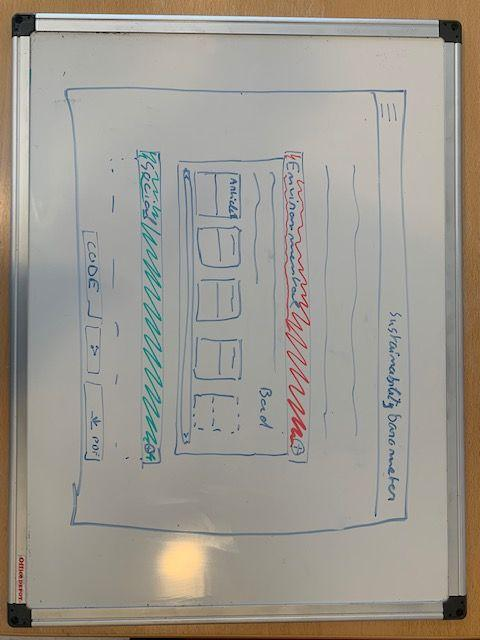 Sustainability barometer
Environmental
Bad
Article
Social
CODE
PDF
Office DEPOT